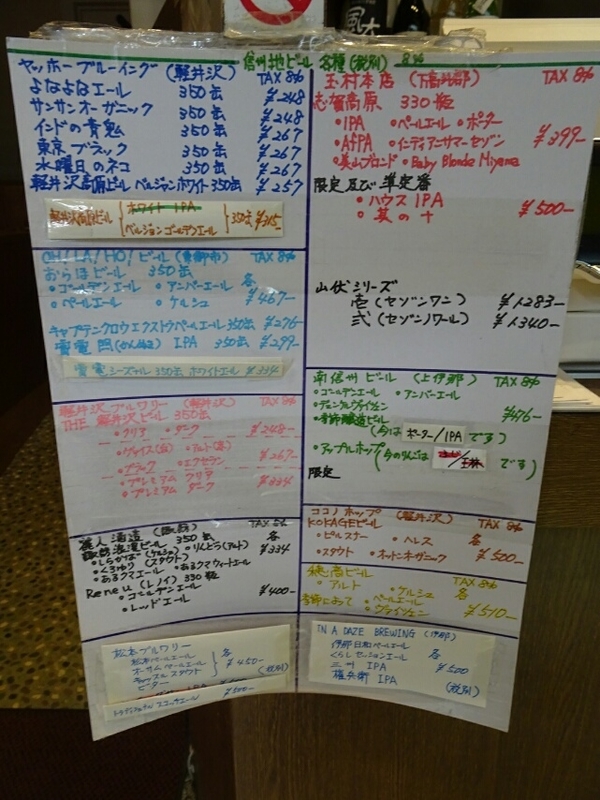 信州地ビール 各種(税別) 8%
ヤッホーブルーイング(軽井沢) TAX 8%
よなよなエール 350缶 ¥248
サンサンオーガニック 350缶 ¥248
インドの青鬼 350缶 ¥267
東京ブラック 350缶 ¥267
水曜日のネコ 350缶 ¥267
軽井沢高原ビール ベルジャンホワイト 350缶 ¥257
軽井沢高原ビール ホワイト IPA
ベルジョンゴールデンエール 350缶
OH!LA!HO!ビール(東御市) TAX 8%
おらほビール 350缶
・ゴールデンエール ・アンバーエール 各
・ペールエール ・ケルシュ ¥467-
キャプテンクロウエクストラペールエール 350缶 ¥276-
雷電 IPA 350缶 ¥299-
雷電シーズナル 350缶 ホワイトエール ¥334
軽井沢ブルワリー(軽井沢) TAX 8%
THE 軽井沢ビール 350缶
・クリア ・ダーク ¥248-
・ヴァイス(白) ・アルト(赤)
・ブラック ・エクセラン ¥267-
・プレミアム クリア
・プレミアム ダーク ¥334
麗人酒造(諏訪) TAX 8%
諏訪浪漫ビール 350缶 各
・しらかば(ケルシュ) ・りんどう(アルト) ¥334
・くろゆり(スタウト)
・あるクマエール ・あるクマウィートエール
Reneu(レノイ) 330瓶
・ゴールデンエール ¥400-
・レッドエール
松本ブルワリー
松本ペールエール 各
オーサムペールエール ¥450-
キャッスルスタウト (税別)
ビター
トラディショナル スコッチエール ¥500-
玉村本店(下高井郡) TAX 8%
志賀高原 330瓶
・IPA ・ペールエール ・ポーター
・AfPA ・インディアンサマーセゾン ¥399-
・美山ブロンド ・Baby Blonde Miyama
限定及び準定番
・ハウスIPA
・其の十 ¥500-
山伏シリーズ
壱(セゾンワニ) ¥1,283-
弐(セゾンノワール) ¥1,340-
南信州ビール(上伊那) TAX 8%
・ゴールデンエール ・アンバーエール
・デュンケルヴァイツェン ¥476-
・季節醸造ビール
(今は ポーター/IPA です)
・アップルホップ(今のりんごは /王林 です)
限定
ココノホップ(軽井沢) TAX 8%
KOKAGEビール 各
・ピルスナー ・ヘレス
・スタウト ・オットンネガーニック ¥500-
穂高ビール TAX 8%
・アルト ・ケルシュ 各
季節によって ・ペールエール ¥510-
・ヴァイツェン
IN A DAZE BREWING(伊那)
伊那日和ペールエール 各
くらしセッションエール ¥500
三州 IPA
権兵衛 IPA (税別)